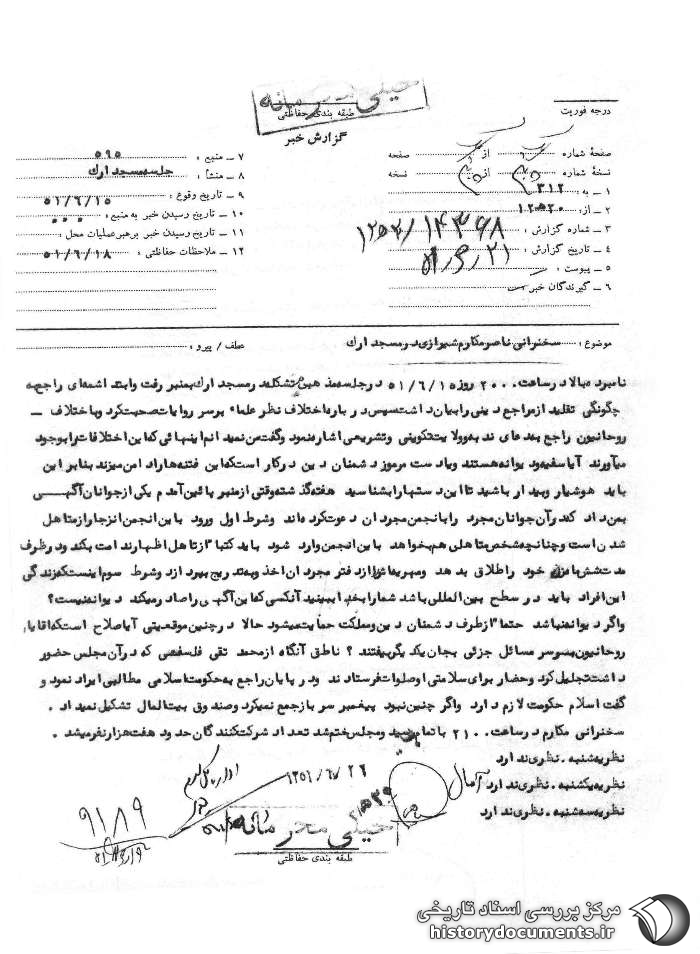 خیلی محرمانه
طبقه بندی حفاظتی
گزارش خبر
درجه فوریت
صفحهٔ شماره از صفحه
نسخهٔ شماره از نسخه
۱ ـ به : ۳۱۲
۲ ـ از : ۱۲ ه ۲۰
۳ ـ شماره گزارش :
۴ ـ تاریخ گزارش :
۵ ـ پیوست :
۶ ـ گیرندگان خبر
۷ ـ منبع : ۵۹۵
۸ ـ منشأ : جلسه مسجد ارك
۹ ـ تاریخ وقوع : ۵۱/۶/۱۵
۱۰ ـ تاریخ رسیدن خبر به منبع :
۱۱ ـ تاریخ رسیدن خبر برهبر عملیات محل :
۱۲ ـ ملاحظات حفاظتی : ۵۱/۶/۱۸
موضوع : سخنرانی ناصر مکارم شیرازی در مسجد ارك
عطف / پیرو :
نامبرده بالا در ساعت ۲۰۰۰ روز ۵۱/۶/۱۵ در جلسه مذهبی متشکله در مسجد ارك بمنبر رفت و ابتدا شمه‌ای راجع به
چگونگی تقلید از مراجع دینی را بیان داشت سپس در باره اختلاف نظر علماء بر سر روایات صحبت کرد و باختلاف ــ
روحانیون راجع بدعای ندبه و ولایت تکوینی و تشریعی اشاره نمود و گفت من نمیدانم اینهائی که این اختلافات را بوجود
میآورند آیا سفیه و دیوانه هستند و یا دست مرموز دشمنان دین در کار است که این فتنه‌ها را دامن میزند بنابر این
باید هوشیار و بیدار باشید تا این دستها را بشناسید هفته گذشته وقتی از منبر پائین آمدم یکی از جوانان آگهــی
بمن داد که در آن جوانان مجرد را بانجمن مجردان دعوت کرده‌اند و شرط اول ورود باین انجمن انزجار از متاهل
شدن است و چنانچه شخص متاهلی هم بخواهد باین انجمن وارد شود باید کتباً از تاهل اظهار ندامت بکند و در ظرف
مدت شش ماه زن خود را طلاق بدهد و مهریه‌اش را از دفتر مجردان اخذ و بتدریج بپردازد و شرط سوم اینست که زندگی
این افراد باید در سطح بین المللی باشد شما را بخدا ببینید آنکسی که این آگهی را صادر میکند دیوانه نیست ؟
و اگر دیوانه نباشد حتماً از طرف دشمنان دین و مملکت حمایت میشود حالا در چنین موقعیتی آیا صلاح است که آقایان
روحانیون بر سر مسائل جزئی بجان یکدیگر بیفتند ؟ ناطق آنگاه از محمد تقی فلسفی که در آن مجلس حضور
داشت تجلیل کرد و حضار برای سلامتی او صلوات فرستادند و در پایان راجع به حکومت اسلامی مطالبی ایراد نمود و
گفت اسلام حکومت لازم دارد و اگر چنین نبود پیغمبر سرباز جمع نمیکرد و صندوق بیت المال تشکیل نمیداد .
سخنرانی مکارم در ساعت ۲۱۰۰ باتمام رسید و مجلس ختم شد تعداد شرکت کنندگان حدود هفت هزار نفر میشد .
نظریه شنبه . نظری ندارد
نظریه یکشنبه . نظری ندارد آمال
نظریه سه شنبه . نظری ندارد
۱۳۵۱/۶/۲۶
۹۱۸۹
خیلی محرمانه
طبقه بندی حفاظتی
مرکز بررسی اسناد تاریخی
historydocuments.ir